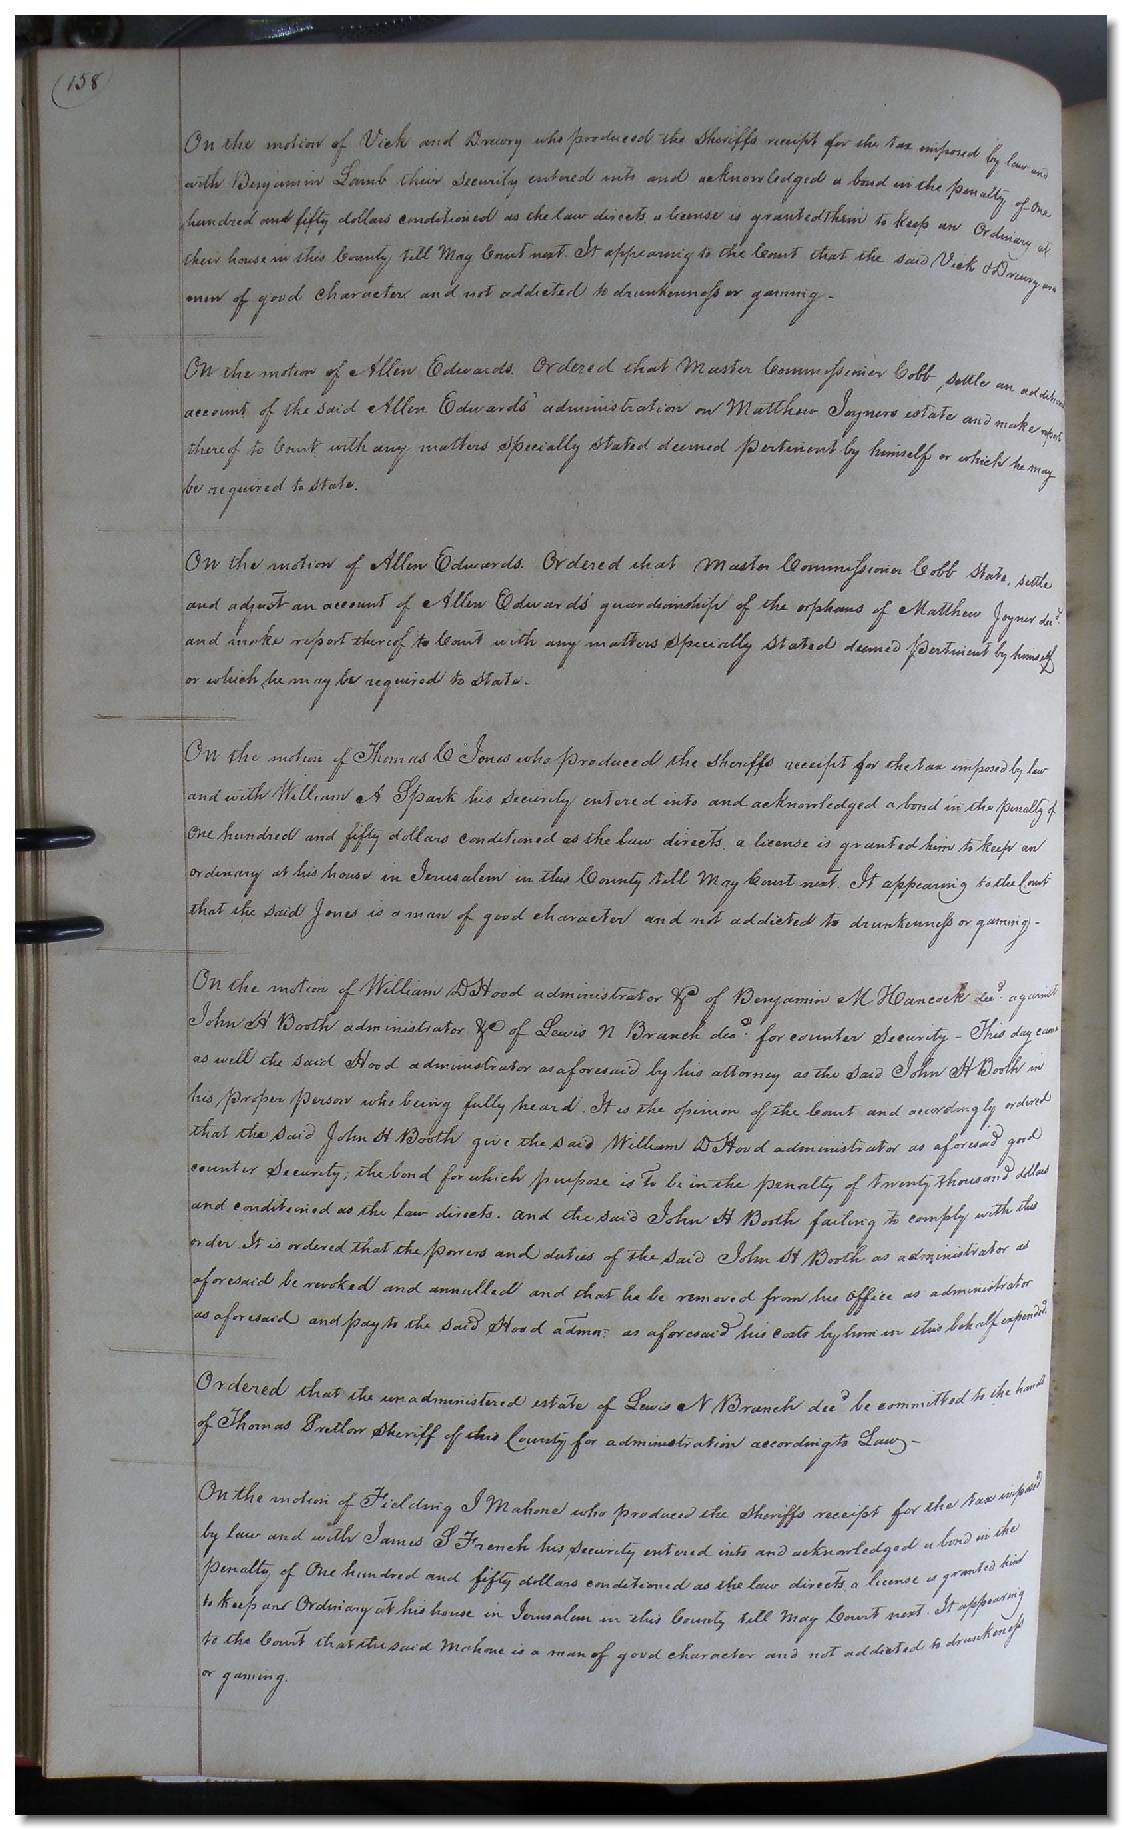 158
On the motion of Vick and Drewry who produced the Sheriffs receipt for the tax imposed by law and
with Benjamin Lamb their security entered into and acknowledged a bond in the penalty of One
hundred and fifty dollars conditioned as the law directs a license is granted them to keep an Ordinary at
their house in this County till May Court next. It appearing to the Court that the said Vick & Drewry are
men of good character and not addicted to drunkenness or gaming.
On the motion of Allen Edwards. Ordered that Master Commissioner Cobb, settle an additional
account of the said Allen Edwards' administration on Matthew Joyners estate and make report
thereof to Court with any matters specially stated deemed pertinent by himself or which he may
be required to state.
On the motion of Allen Edwards. Ordered that Master Commissioner Cobb state, settle
and adjust an account of Allen Edwards' guardianship of the orphans of Matthew Joyner decd.
and make report thereof to Court with any matters specially stated deemed pertinent by himself
or which he may be required to state.
On the motion of Thomas C Jones who produced the Sheriffs receipt for the tax imposed by law
and with William A Spark his security entered into and acknowledged a bond in the penalty of
One hundred and fifty dollars conditioned as the law directs, a license is granted him to keep an
ordinary at his house in Jerusalem in this County till May Court next. It appearing to the Court
that the said Jones is a man of good character and not addicted to drunkenness or gaming -
On the motion of William D Hood administrator &c of Benjamin M Hancock decd. against
John H Booth administrator &c of Lewis N Branch decd. for counter Security - This day came
as well the said Hood administrator as aforesaid by his attorney as the said John H Booth in
his proper person who being fully heard. It is the opinion of the Court and accordingly ordered
that the said John H Booth give the said William D Hood administrator as aforesaid good
counter Security; the bond for which purpose is to be in the penalty of twenty thousand dollars
and conditioned as the law directs. and the said John H Booth failing to comply with this
order It is ordered that the powers and duties of the said John H Booth as administrator as
aforesaid be revoked and annulled and that he be removed from his office as administrator
as aforesaid and pay to the said Hood admr. as aforesaid his costs by him in this behalf expended
Ordered that the unadministered estate of Lewis N Branch decd be committed to the hands
of Thomas Pretlow Sheriff of this County for administration according to Law -
On the motion of Fielding J Mahone who produced the Sheriffs receipt for the tax imposed
by law and with James S French his security entered into and acknowledged a bond in the
penalty of One hundred and fifty dollars conditioned as the law directs, a license is granted him
to keep an Ordinary at his house in Jerusalem in this County till May Court next. It appearing
to the Court that the said Mahone is a man of good character and not addicted to drunkeness
or gaming.